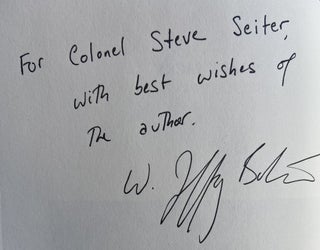 For Colonel Steve Seiter,
with best wishes of
the author.
W. Jeffrey